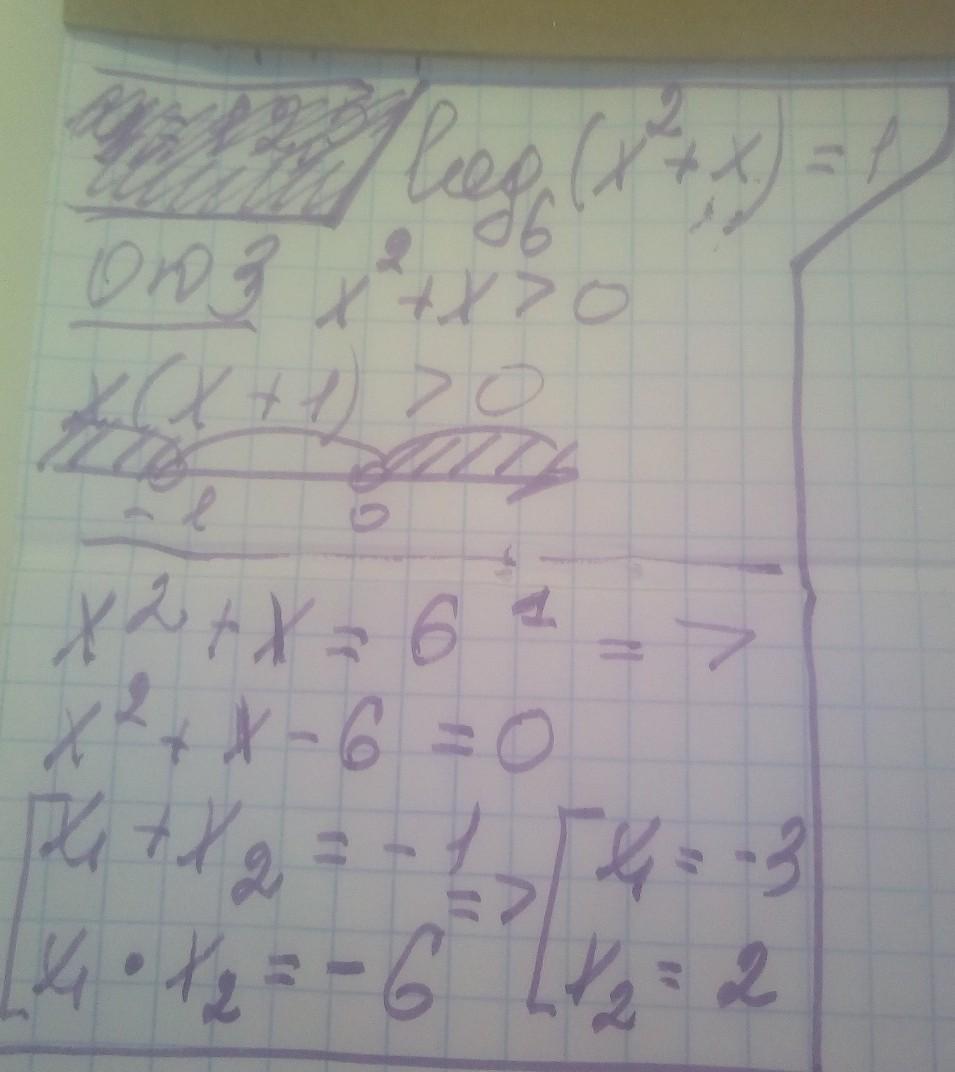 log₆(x²+x) = 1
ОДЗ x²+x>0
x(x+1) > 0
-1 0
x²+x = 6¹ =>
x²+x-6 = 0
[x₁+x₂ = -1 => [x₁ = -3
x₁·x₂ = -6 x₂ = 2